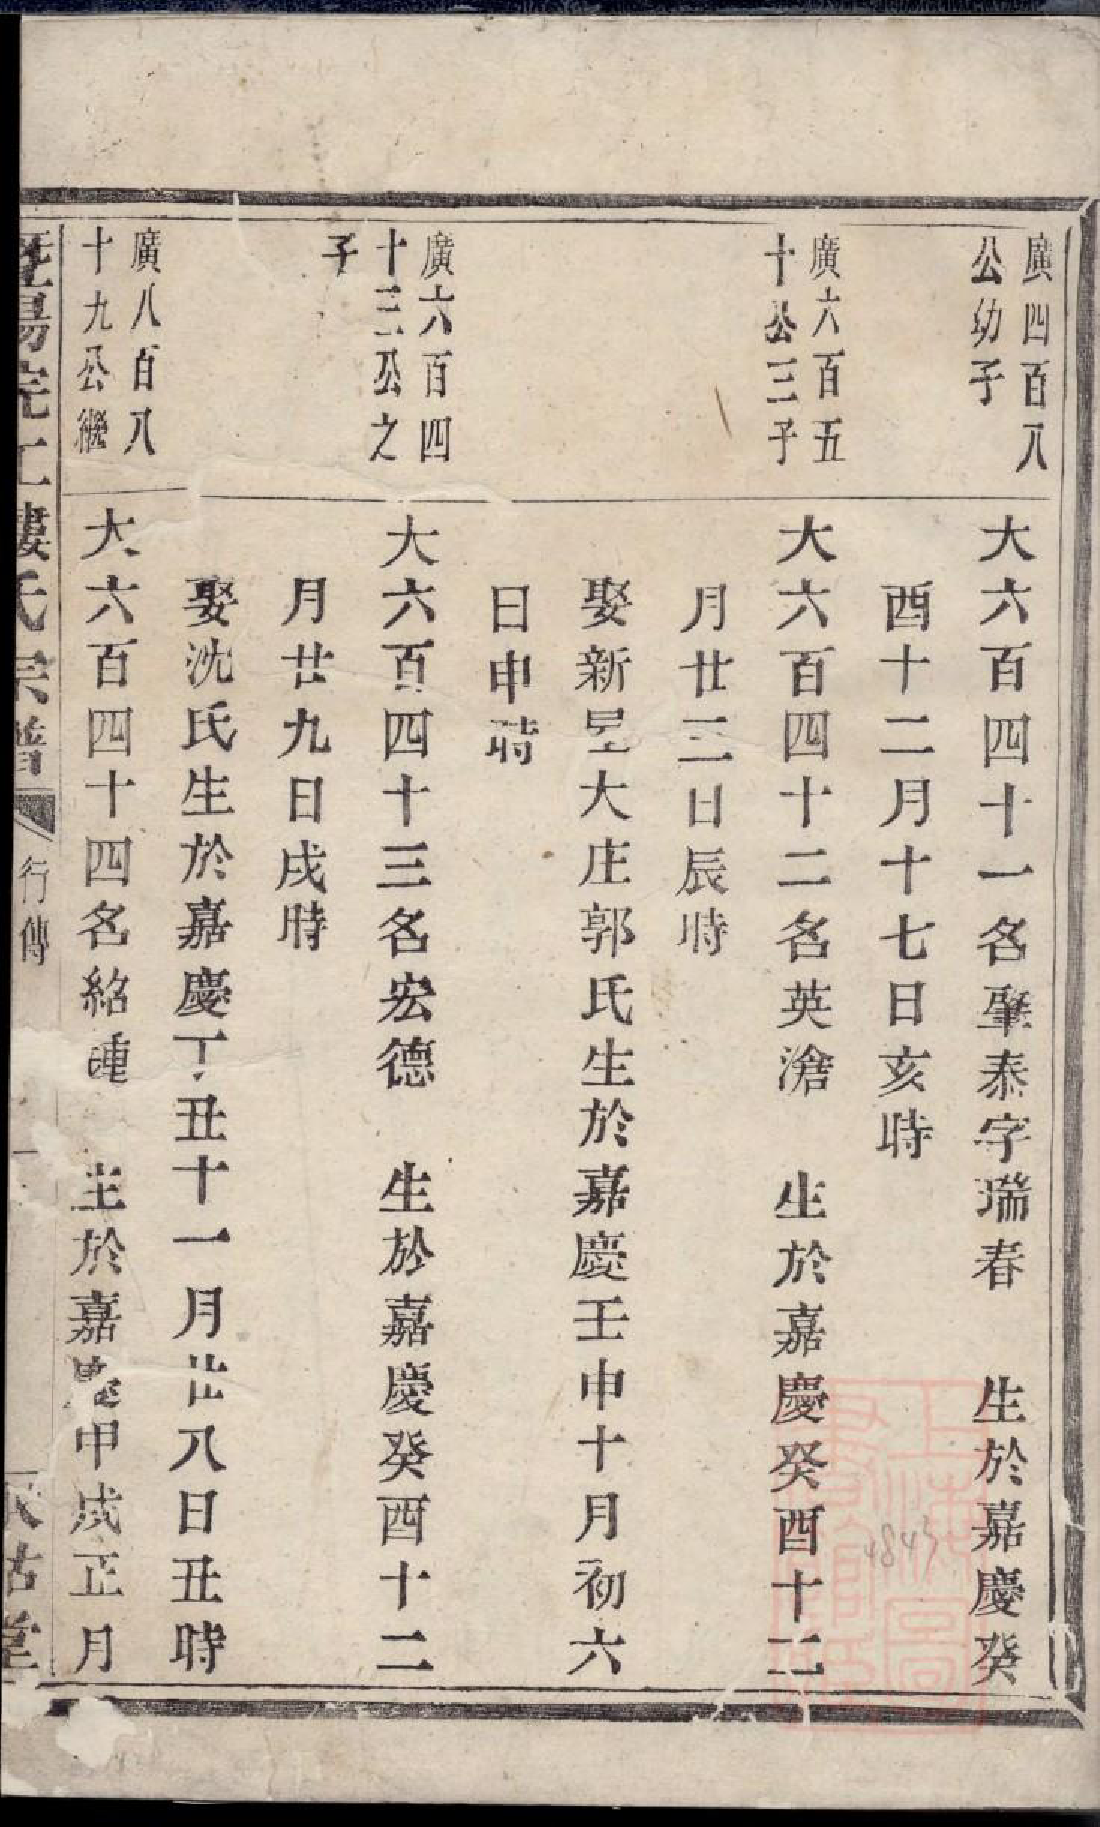 廣四百八
公幼子
大六百四十一名肇泰字瑞春 生於嘉慶癸
酉十二月十七日亥時
廣六百五
十公三子
大六百四十二名英滄 生於嘉慶癸酉十二
月廿三日辰時
娶新𣅿大庄郭氏生於嘉慶壬申十月初六
日申時
廣六百四
十三公之
子
大六百四十三名宏德 生於嘉慶癸酉十二
月廿九日戌時
娶沈氏生於嘉慶丁丑十一月廿八日丑時
廣八百八
十九公繼
大六百四十四名紹鍾 生於嘉慶甲戌正月
暨陽 樓氏宗譜 行傳
上海圖書館藏
4843